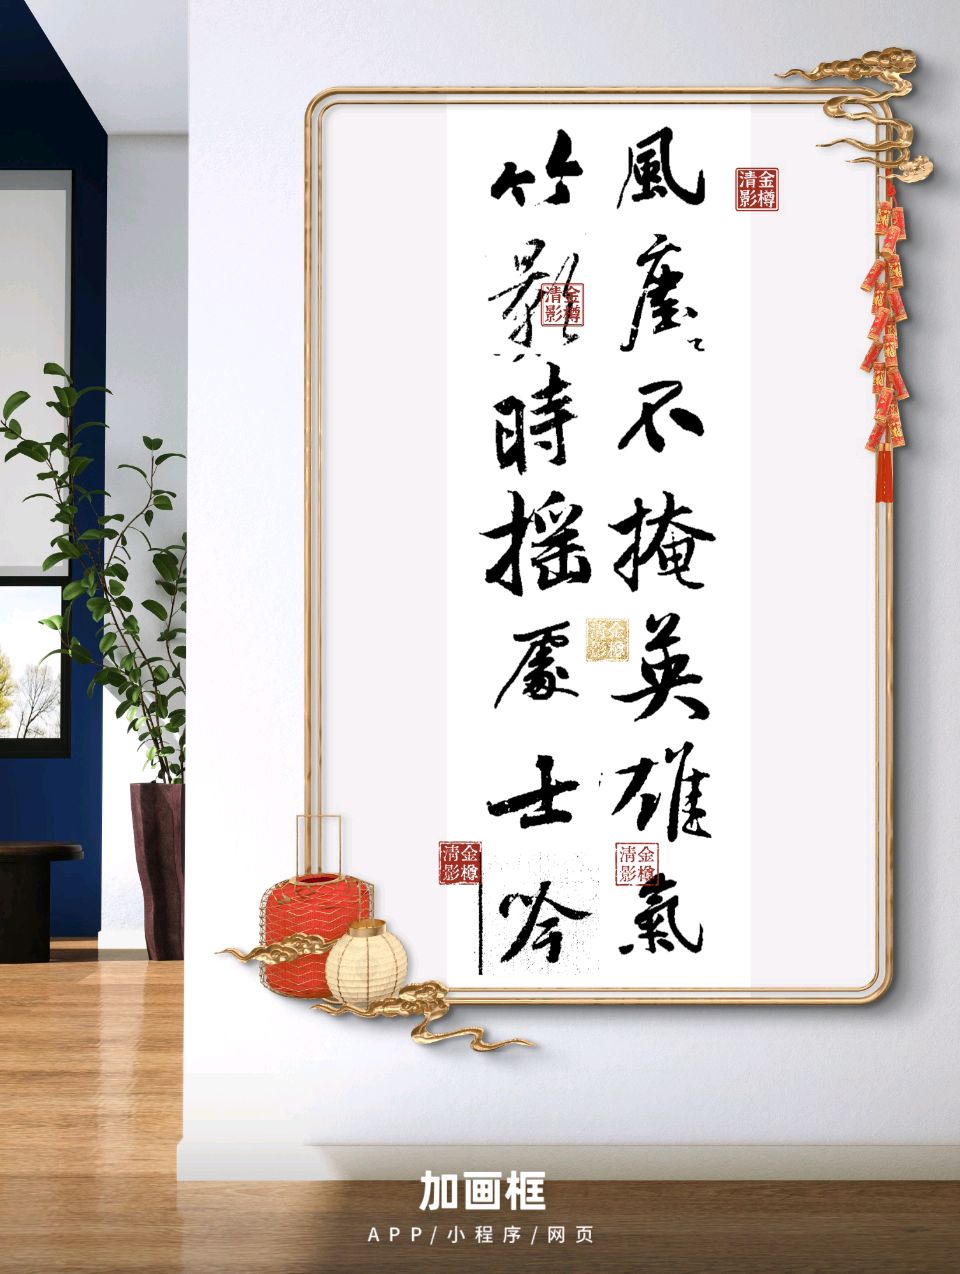 風塵不掩英雄氣
竹影時摇處士吟
金樽清影
金樽清影
金樽清影
金樽清影
金樽清影
加画框
APP/小程序/网页